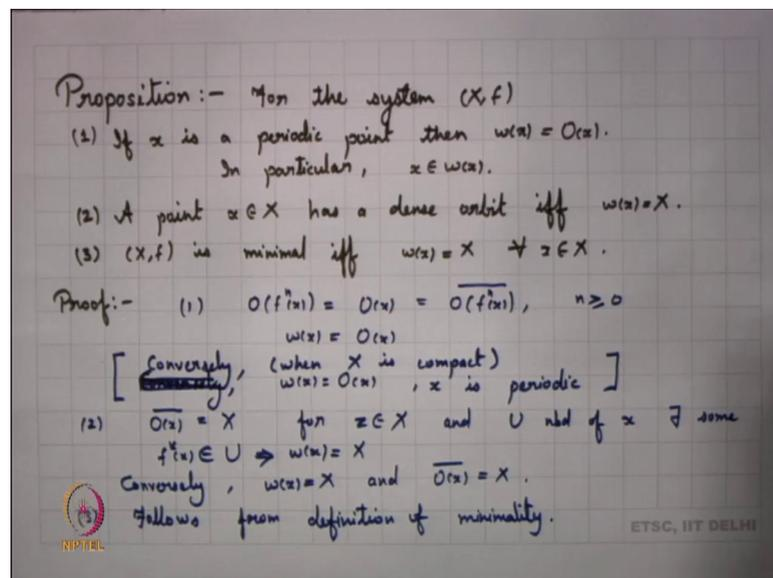 Proposition :- For the system (X, f)
(1) If x is a periodic point then ω(x) = O(x).
In particular, x ∈ ω(x).
(2) A point x ∈ X has a dense orbit iff ω(x) = X.
(3) (X, f) is minimal iff ω(x) = X ∀ x ∈ X.
Proof :- (1) O(fⁿ(x)) = O(x) = \overline{O(fⁿ(x))}, n ≥ 0
ω(x) = O(x)
[ Conversely, (when X is compact)
ω(x) = O(x), x is periodic ]
(2) \overline{O(x)} = X for z ∈ X and U nbd of x ∃ some
fⁿ(x) ∈ U ⇒ ω(x) = X
Conversely, ω(x) = X and \overline{O(x)} = X.
(3) Follows from definition of minimality.
NPTEL
ETSC, IIT DELHI